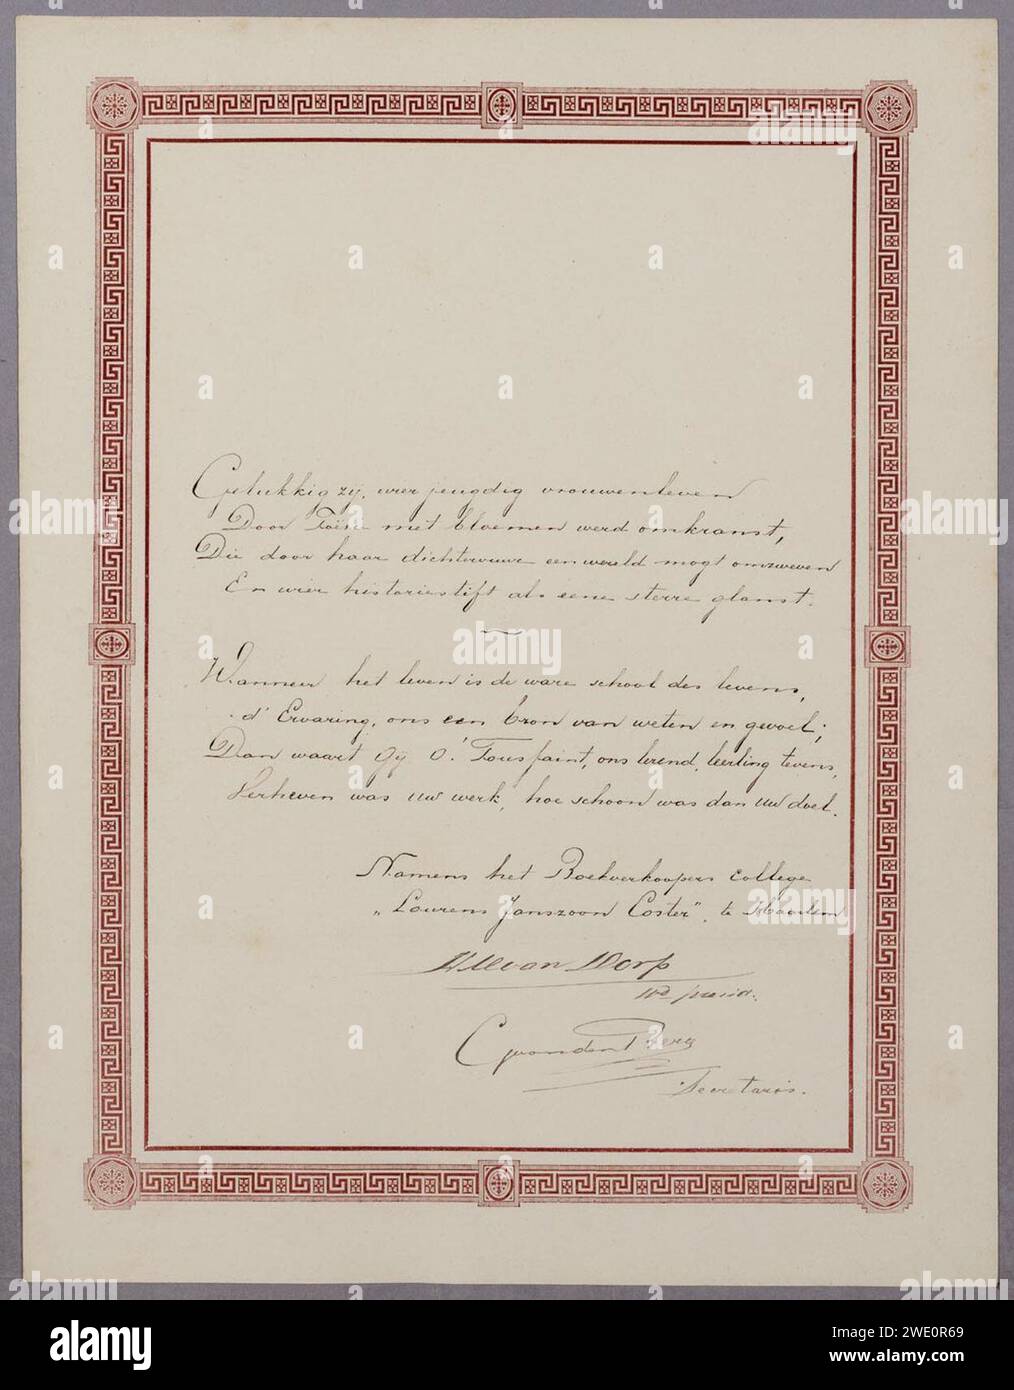 Gelukkig zij, wier jeugdig vrouwenleven
Door Poësie met bloemen werd omkranst,
Die door haar dichtvuur een wereld mogt omzweven
En wier historiestift als eene sterre glanst.
Wanneer het leven is de ware school des levens,
d' Ervaring, ons een bron van weten en gevoel;
Dan waart Gij O! Toussaint, ons leerend, leerling tevens,
Verheven was uw werk, hoe schoon was dan uw doel.
Namens het Boekverkoopers college
„Lourens Janszoon Coster", te Haarlem
van Dorp
presid.
C van den Berg
Secretaris.
alamy
Image ID: 2WE0R69
www.alamy.com